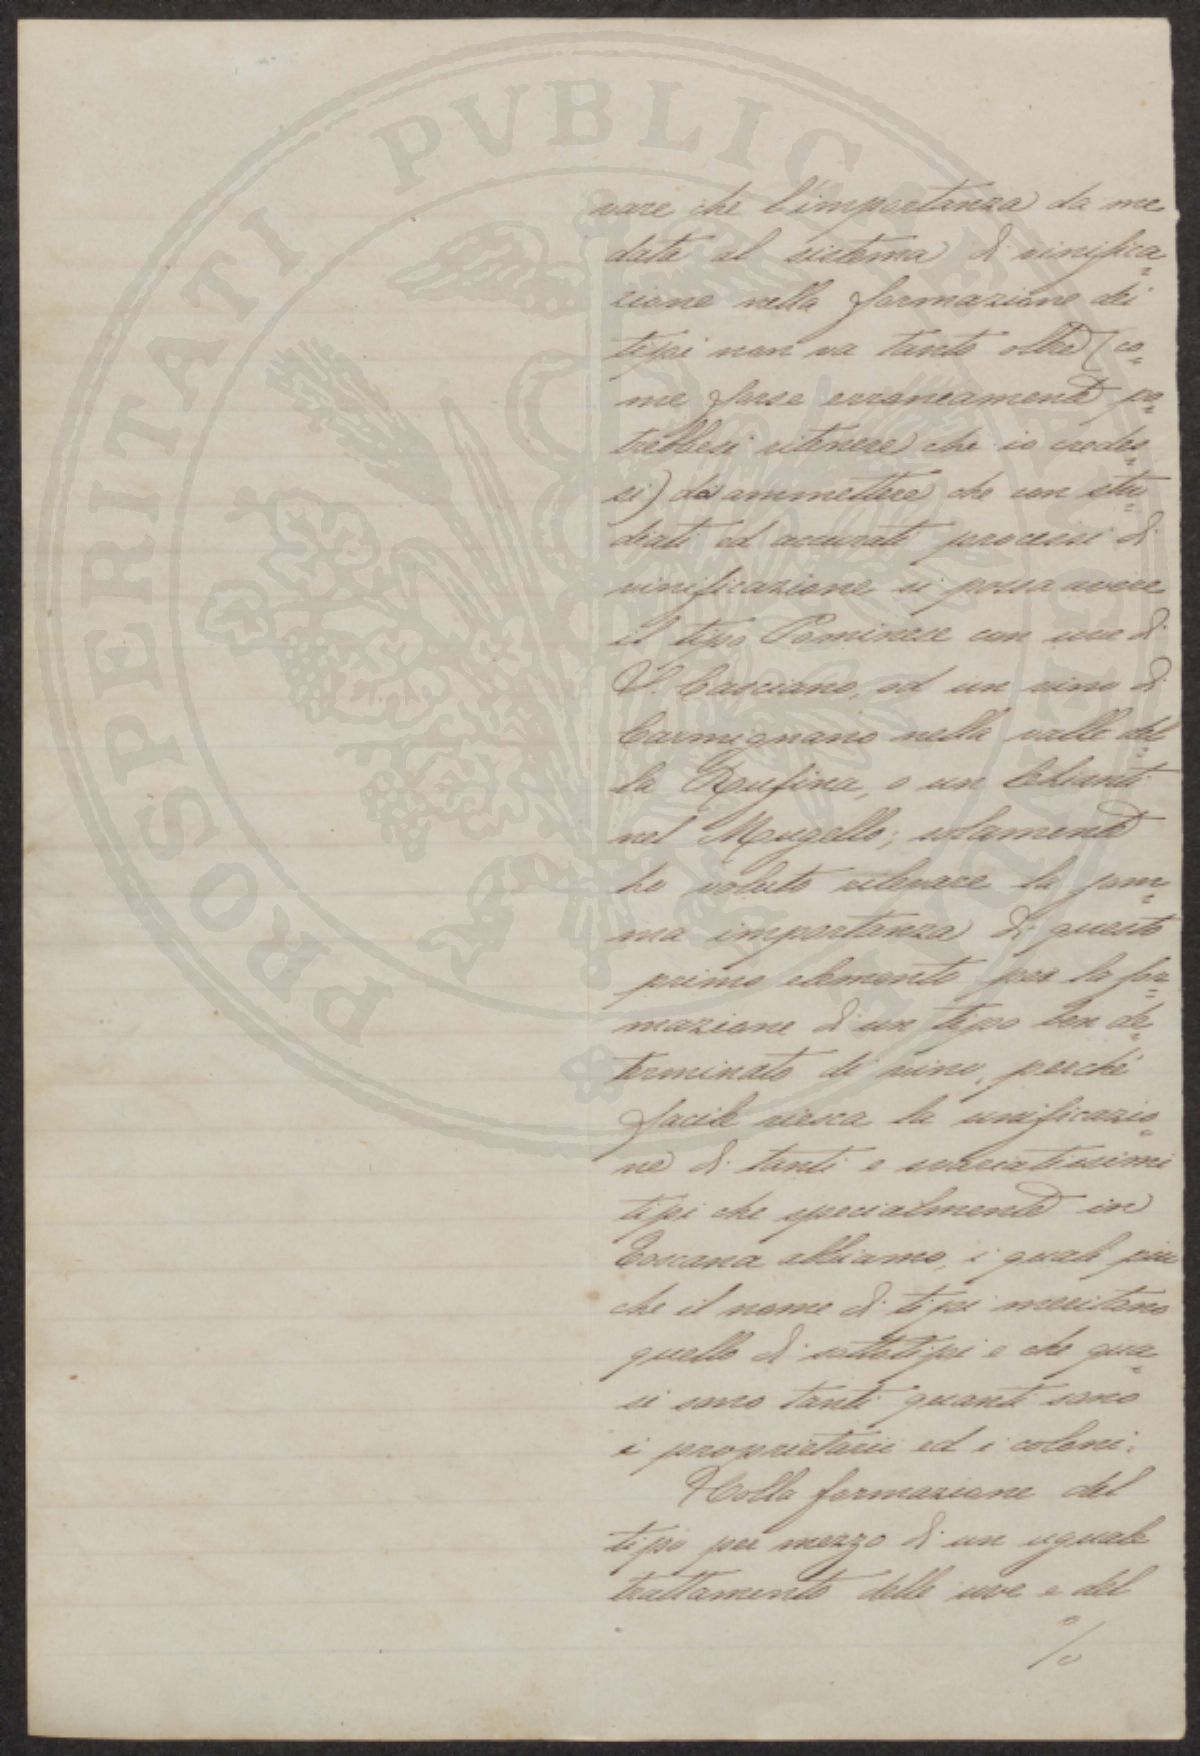 PROSPERITATI PVBLICAE AVGENDAE
vare che l'importanza da me
data al sistema di vinifica=
zione nella formazione dei
tipi non va tanto oltre (co=
me forse erroneamente po=
trebbesi ritenere che io credes=
si) da ammettere che con stu=
diati ed accurati processi di
vinificazione si possa avere
il tipo Pominese con uve di
S. Casciano, od un vino di
Carmignano nella valle del=
la Rufina, o un Chianti
nel Mugello; solamente
ho voluto rilevare la som=
ma importanza di questo
primo elemento per la for=
mazione di un tipo ben de=
terminato di vino, perché
facile riesca la unificazio=
ne di tanti e svariatissimi
tipi che specialmente in
Toscana abbiamo, i quali piu
che il nome di tipi meritano
quello di sottotipi e che qua=
si sono tanti quanti sono
i proprietarii ed i coloni.
Colla formazione del
tipo per mezzo di un uguale
trattamento delle uve e del
%